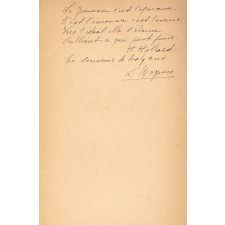 La jeunesse c'est l'espérance
C'est l'inconnu c'est l'avenir
Vers l'idéal elle s'élance
Oubliant ce qui peut finir.
H. Hollard
En souvenir de
L.